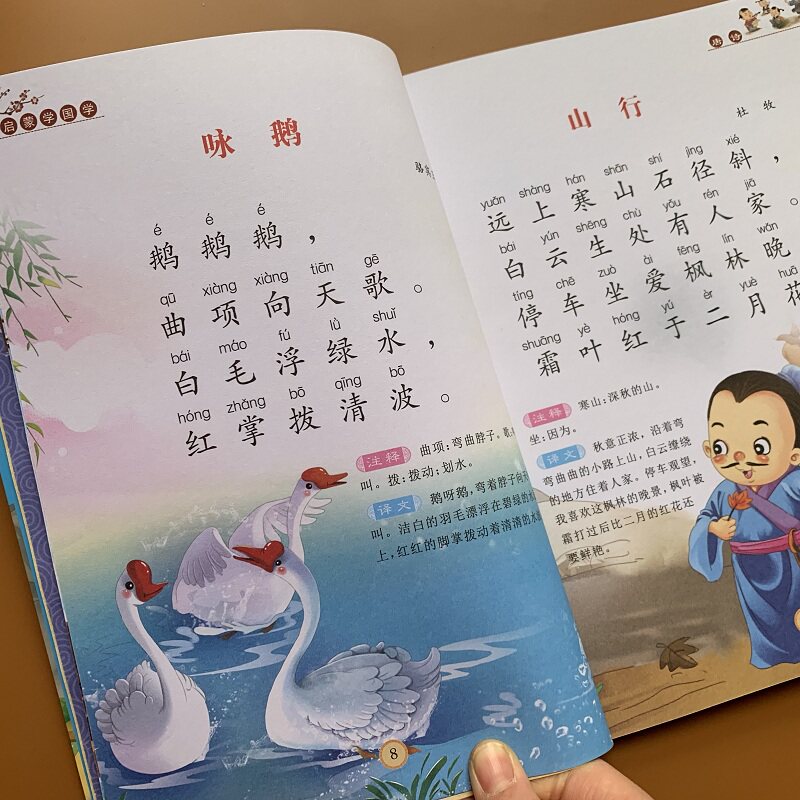 启蒙学国学
咏鹅
é é é
鹅鹅鹅，
qū xiàng xiàng tiān gē
曲项向天歌。
bái máo fú lǜ shuǐ
白毛浮绿水，
hóng zhǎng bō qīng bō
红掌拨清波。
注释 曲项：弯曲脖子。歌
叫。拨：拨动；划水。
译文 鹅呀鹅，弯着脖子向天
叫。洁白的羽毛漂浮在碧绿的水
上，红红的脚掌拨动着清清的水
8
唐诗
山行
杜牧
yuǎn shàng hán shān shí jìng xié
远上寒山石径斜，
bái yún shēng chù yǒu rén jiā
白云生处有人家。
tíng chē zuò ài fēng lín wǎn
停车坐爱枫林晚
shuāng yè hóng yú èr yuè huā
霜叶红于二月花
注释 寒山：深秋的山。
坐：因为。
译文 秋意正浓，沿着弯
弯曲曲的小路上山，白云缭绕
的地方住着人家。停车观望，
我喜欢这枫林的晚景，枫叶被
霜打过后比二月的红花还
要鲜艳。